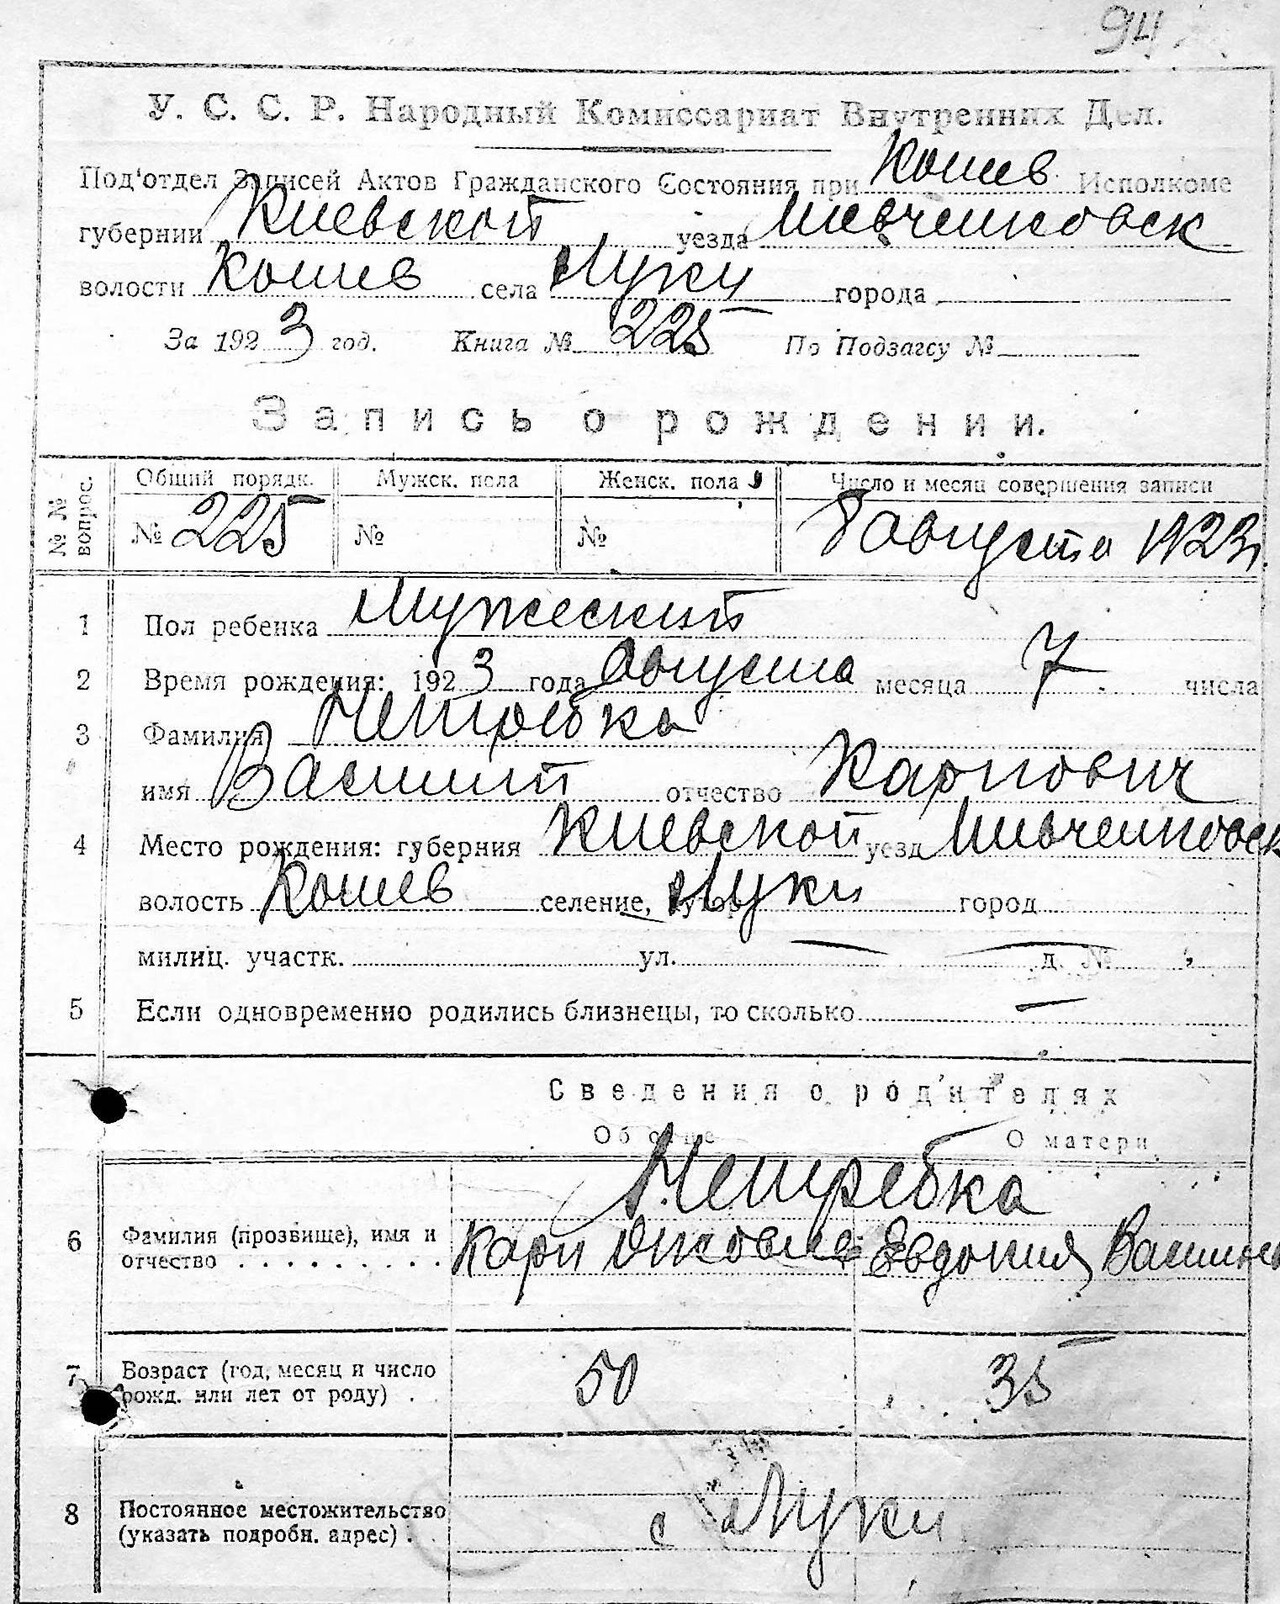 94
У. С. С. Р. Народный Комиссариат Внутренних Дел.
Под'отдел Записей Актов Гражданского Состояния при Кошев Исполкоме
губернии Киевской уезда Шевченковск
волости Кошев села Луки города
За 1923 год. Книга № 225 По Подзагсу №
Запись о рождении.
№ № вопрос. Общий порядк. Мужск. пола Женск. пола Число и месяц совершения записи
№ 225 № № 8 августа 1923 г.
1 Пол ребенка Мужеский
2 Время рождения: 1923 года Августа месяца 7 числа
3 Фамилия Нетребка
имя Василий отчество Карпович
4 Место рождения: губерния Киевской уезд Шевченковск
волость Кошев селение, хутор Луки город
милиц. участк. ул. д. №
5 Если одновременно родились близнецы, то сколько —
Сведения о родителях
Об отце О матери
Нетребка
6 Фамилия (прозвище), имя и
отчество Карп Яковлев Евдокия Васильев
7 Возраст (год, месяц и число
рожд. или лет от роду) 50 35
8 Постоянное местожительство
(указать подробн. адрес) с Луки